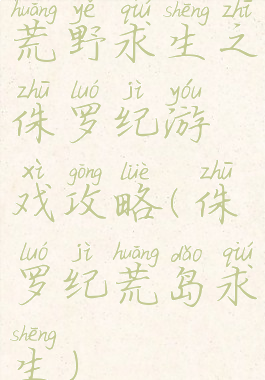 huāng yě qiú shēng zhī
荒野求生之
zhū luó jì yóu
侏罗纪游
xì gōng lüè zhū
戏攻略(侏
luó jì huāng dǎo qiú
罗纪荒岛求
shēng
生)